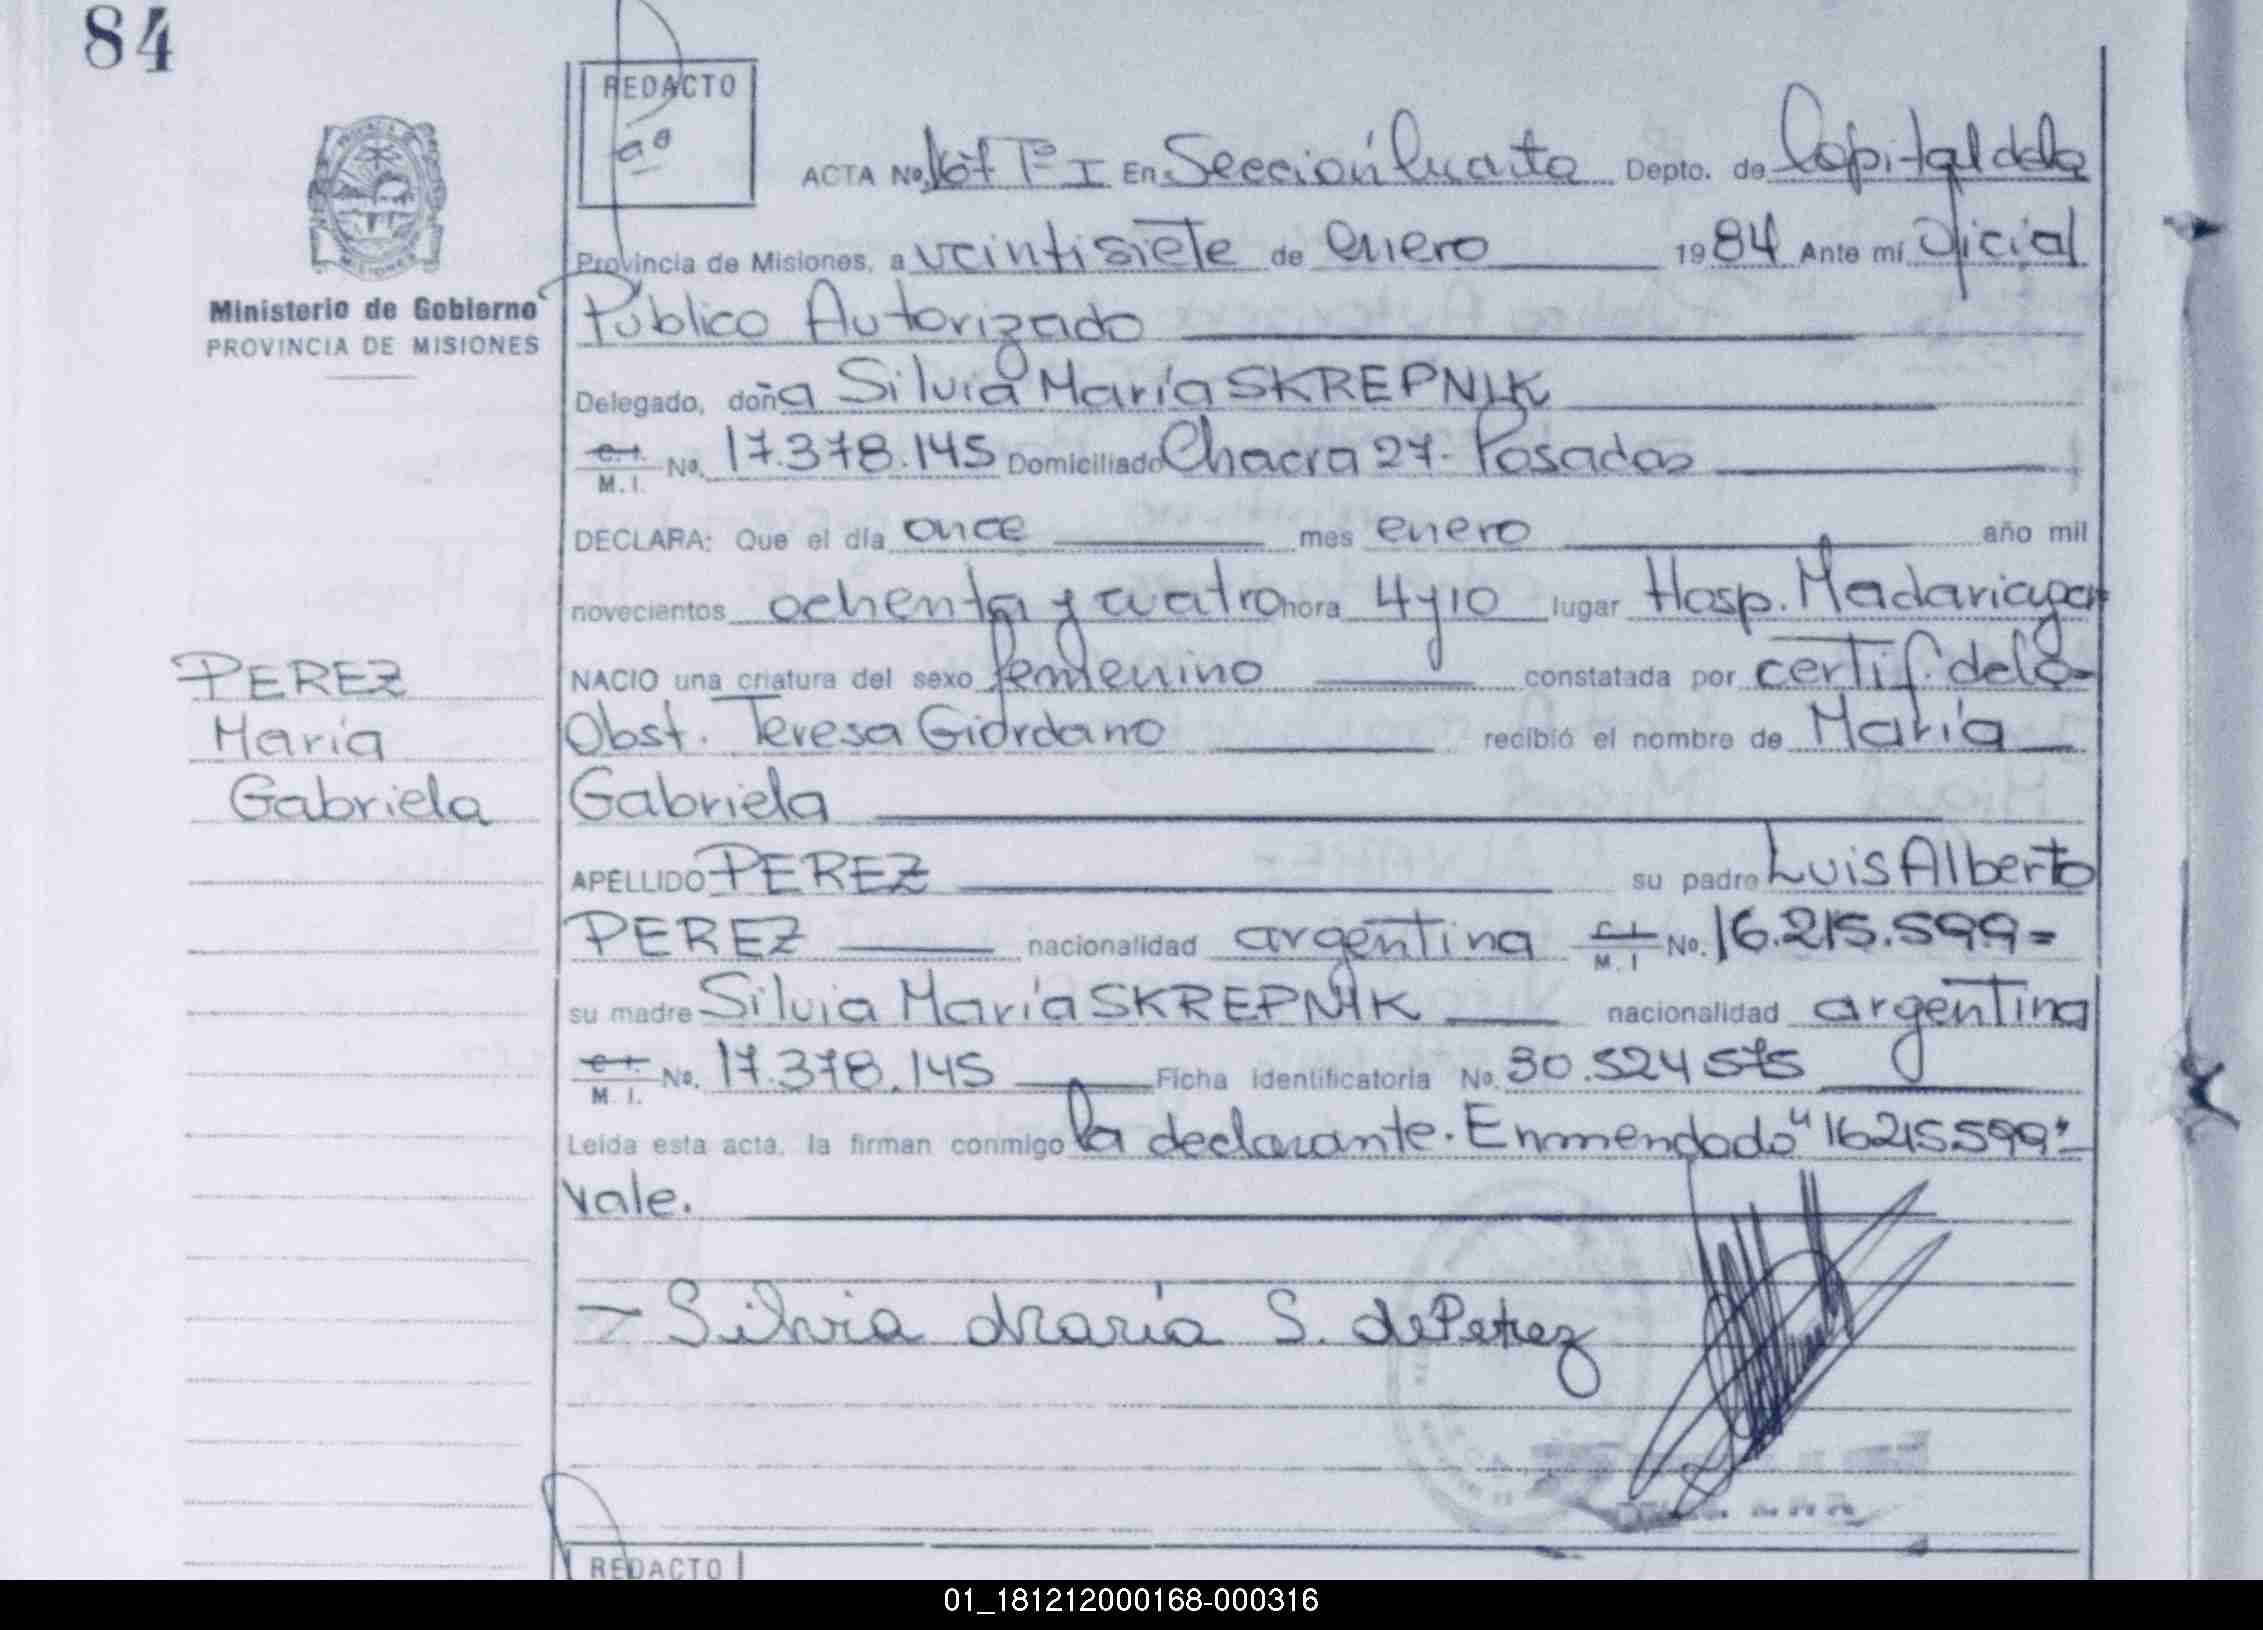 84
REDACTO
aº
ACTA No. 167 Tº I En Sección Cuarta Depto. de Capital de la
Provincia de Misiones, a veintisiete de enero 1984 Ante mí Oficial
Ministerio de Gobierno
PROVINCIA DE MISIONES
Público Autorizado
Delegado, doña Silvia María SKREPNIK
C. I. M. I. No. 17.378.145 Domiciliado Chacra 27- Posadas
DECLARA: Que el día once mes enero año mil
novecientos ochenta y cuatro hora 4y10 lugar Hosp. Madariaga
NACIO una criatura del sexo femenino constatada por certif. de la
Obst. Teresa Giordano recibió el nombre de María
Gabriela
PEREZ
María
Gabriela
APELLIDO PEREZ su padre Luis Alberto
PEREZ nacionalidad argentina C. I. M. I No. 16.215.599=
su madre Silvia María SKREPNIK nacionalidad argentina
C. I. M. I. No. 17.378.145 Ficha identificatoria No. 30.524575
Leída esta acta, la firman conmigo la declarante. Enmendado "16215599"-
vale.
Silvia María S. de Perez
REDACTO
01_181212000168-000316